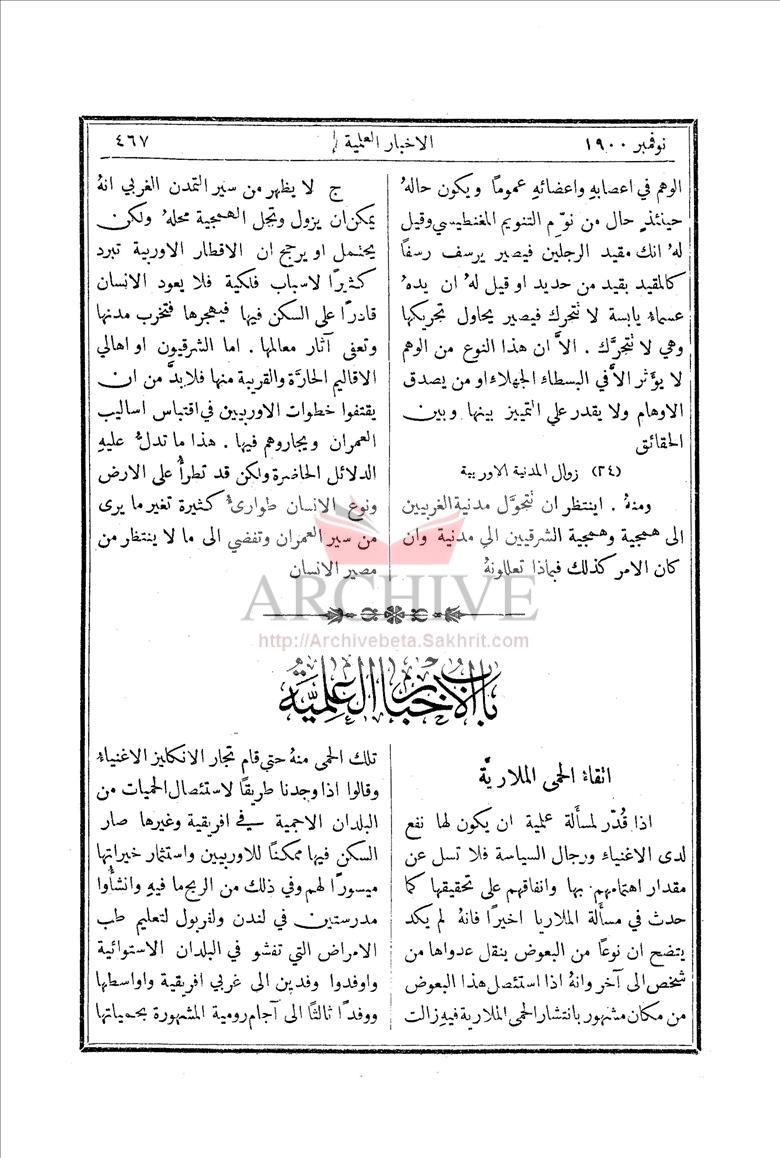 نوفمبر ١٩٠٠
الاخبار العلمية
٤٦٧
الوهم في اعصابهِ واعضائهِ عموماً ويكون حالهُ
حينئذٍ حال من نوّم التنويم المغنطيسي وقيل
لهُ انك مقيد الرجلين فيصير يرسف رسفاً
كالمقيد بقيد من حديد او قيل لهُ ان يدهُ
عسماء يابسة لا نتحرك فيصير يحاول تحريكها
وهي لا نتحرَّك . الاَّ ان هذا النوع من الوهم
لا يوَّثر الاَّ في البسطاء الجهلاء او من يصدق
الاوهام ولا يقدر على التمييز بينها وبين
الحقائق
(٢٤) زوال المدنية الاوربية
ومنهُ . اينتظر ان نتحوَّل مدنية الغربيين
الى همجية وهمجية الشرقيين الى مدنية وان
كان الامر كذلك فبماذا تعللونهُ
ج لا يظهر من سير التمدن الغربي انهُ
يمكن ان يزول وتجل الهمجية محلهُ ولكن
يحتمل او يرجح ان الاقطار الاوربية تبرد
كثيرًا لاسباب فلكية فلا يعود الانسان
قادرًا على السكن فيها فيهجرها فتخرب مدنها
وتعفى آثار معالمها . اما الشرقيون او اهالي
الاقاليم الحارَّة والقريبة منها فلا بدَّ من ان
يقتفوا خطوات الاوربيين في اقتباس اساليب
العمران ويجاروهم فيها . هذا ما تدلُّ عليهِ
الدلائل الحاضرة ولكن قد تطرأُ على الارض
ونوع الانسان طوارىءُ كثيرة تغير ما يرى
من سير العمران وتفضي الى ما لا ينتظر من
مصير الانسان
ARCHIVE
http://Archivebeta.Sakhrit.com
باب الاخبار العلمية
اتقاء الحمى الملاريَّة
اذا قُدّر لمسأَلة علمية ان يكون لها نفع
لدى الاغنياء ورجال السياسة فلا تسل عن
مقدار اهتمامهم بها وانفاقهم على تحقيقها كما
حدث في مسأَلة الملاريا اخيرًا فانهُ لم يكد
يتضح ان نوعًا من البعوض ينقل عدواها من
شخص الى آخر وانهُ اذا استئصل هذا البعوض
من مكان مشهور بانتشار الحمى الملارية فيهِ زالت
تلك الحمى منهُ حتى قام تجار الانكليز الاغنياءُ
وقالوا اذا وجدنا طريقًا لاستئصال الحميات من
البلدان الاجمية في افريقية وغيرها صار
السكن فيها ممكنًا للاوربيين واستثمار خيراتها
ميسورًا لهم وفي ذلك من الربح ما فيهِ وانشأُوا
مدرستين في لندن ولفربول لتعليم طب
الامراض التي تفشو في البلدان الاستوائية
واوفدوا وفدين الى غربي افريقية واواسطها
ووفدًا ثالثًا الى آجام رومية المشهورة بحمياتها